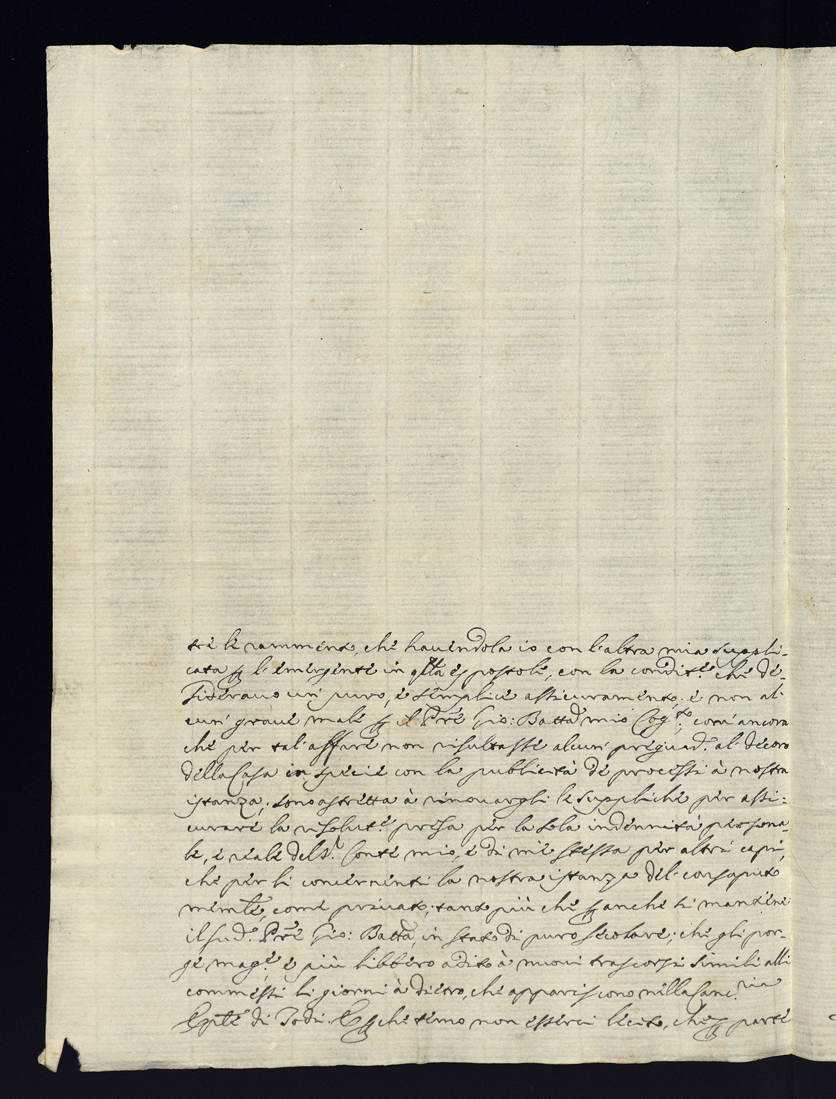 tri le rammento, che havendola io con l'altra mia suppli-
cata p l'emergente in qlla espostole, con la condit.e che de-
siderauo un' puro, e semplice assicuramento; e non al-
cun' graue male p il Prē Gio: Batta mio Cog.to, com'ancora
che per tal'affare non risultasse alcun' preguad.o al decoro
della Casa in specie con la publicità de processi à nostra
istanza; sono astretta à rinouargli le suppliche per assi-
curare la risolut.e presa per la sola indennità persona-
le, e reale del S.r Conte mio, e di me stessa per altri capi,
che per li concernenti la nostra istanza del consaputo
come priuato; tanto più che p anche si mantiene
il sud.o Prē Gio: Batta, in stato di puro secolare; che gli por-
ge mag.re e più libbero adito à nuoui trascorsi simili alli
commessi li giorni à dietro, che appariscono nella Canc.ria
di Todi. E p che temo non esserci lecito, che p parte